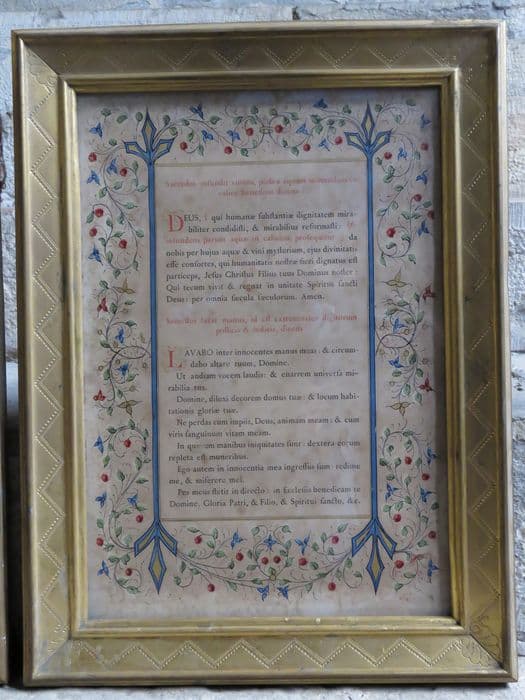 Sacerdos infundit vinum, postea aquam
calice benedicens dicens
DEUS, qui humanæ substantiæ dignitatem mira-
biliter condidisti, & mirabilius reformasti:
infundens parum aquæ in calicem prosequitur: da
nobis per hujus aquæ & vini mysterium, ejus divinitatis
esse consortes, qui humanitatis nostræ fieri dignatus est
particeps, Jesus Christus Filius tuus Dominus noster:
Qui tecum vivit & regnat in unitate Spiritus sancti
Deus: per omnia sæcula sæculorum. Amen.
Sacerdos lavat manus, id est extremitates digitorum
pollicis & indicis, dicens
LAVABO inter innocentes manus meas: & circum-
dabo altare tuum, Domine.
Ut audiam vocem laudis: & enarrem universa mi-
rabilia tua.
Domine, dilexi decorem domus tuæ: & locum habi-
tationis gloriæ tuæ.
Ne perdas cum impiis, Deus, animam meam: & cum
viris sanguinum vitam meam.
In quorum manibus iniquitates sunt: dextera eorum
repleta est muneribus.
Ego autem in innocentia mea ingressus sum: redime
me, & miserere mei.
Pes meus stetit in directo: in ecclesiis benedicam te
Domine. Gloria Patri, & Filio, & Spiritui sancto, &c.